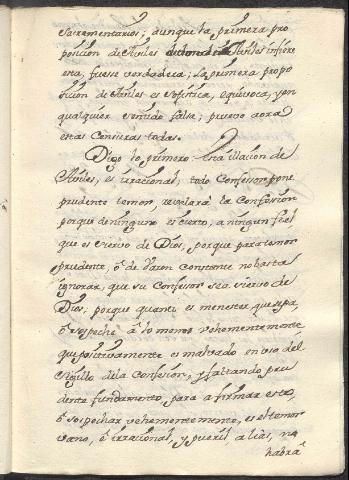 Sacramentarios; aunque la primera pro
posicion de Aviles de donde Aviles infiere
esta, fuese verdadera; La primera propo
sicion de Aviles es sofistica, equivoca, y en
qualquier sentido falsa; pruevo aora
estas Censuras todas.
Digo lo primero: Esta illacion de
Aviles, es irracional, todo Confesor pone
prudente temor, revelará la Confesion
porque de ninguno es cierto, a ningun fiel
que es siervo de Dios, porque para temor
prudente, ó de Varon constante no basta
ignorar, que su Confesor sea siervo de
Dios, porque quanto es menester que sepa,
ó sospeche á lo menos vehementemente
que positivamente es malvado en uso del
Sigillo de la Confesion, y faltando pru
dente fundamento, para afirmar esto,
ó sospechar vehementemente, es el temor
vano, é irracional, y pueril, alias, no
habra